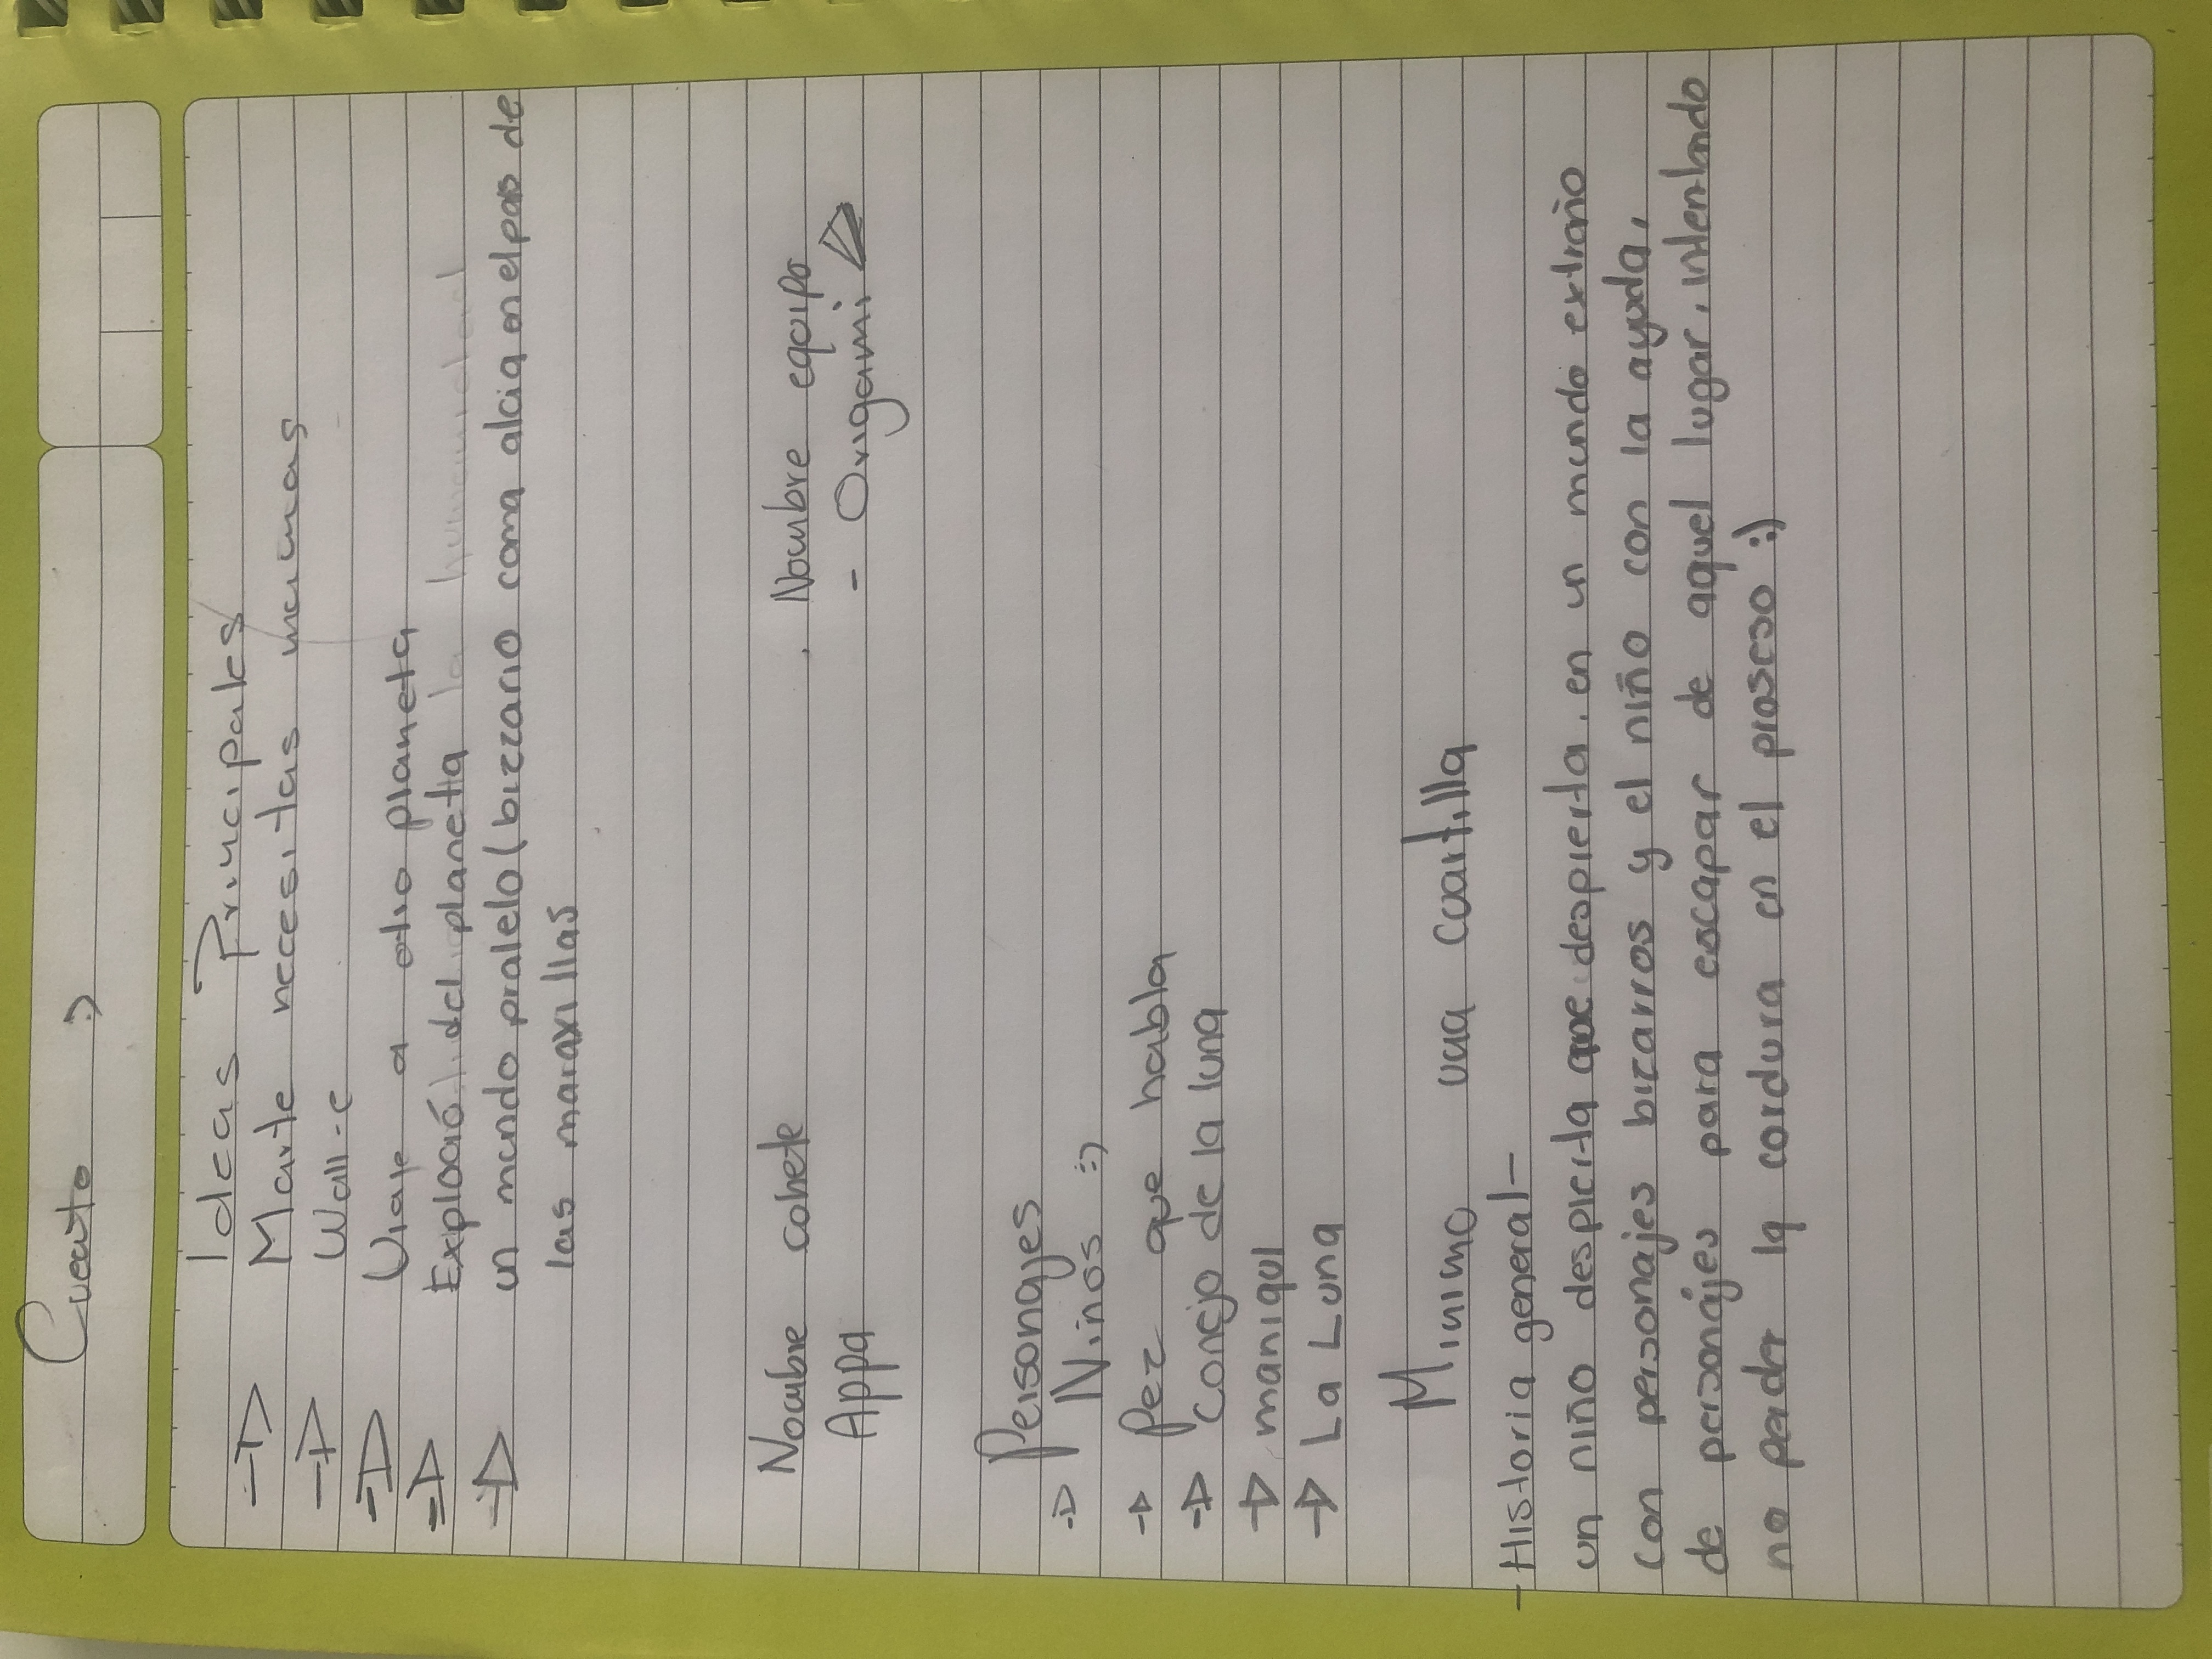 Cuento :)
Ideas Principales
-> Marte necesitas mamas
-> Wall-e
-> Viaje a otro planeta
-> Exploació del planetta la humanidad
-> un mundo pralelo (bizzario como alcia en el pais de
las maravillas
Nombre cohete
Appa
Nombre equipo
- Origami
Personajes
-> Ninos :)
-> Pez que habla
-> Conejo de la luna
-> maniqui
-> La Luna
Minimo una cuartilla
-Historia general-
un niño despierta que despierta en un mundo extraño
con personajes bizarros y el niño con la ayuda,
de personajes para escapar de aquel lugar, intentando
no perder la cordura en el proseso :)